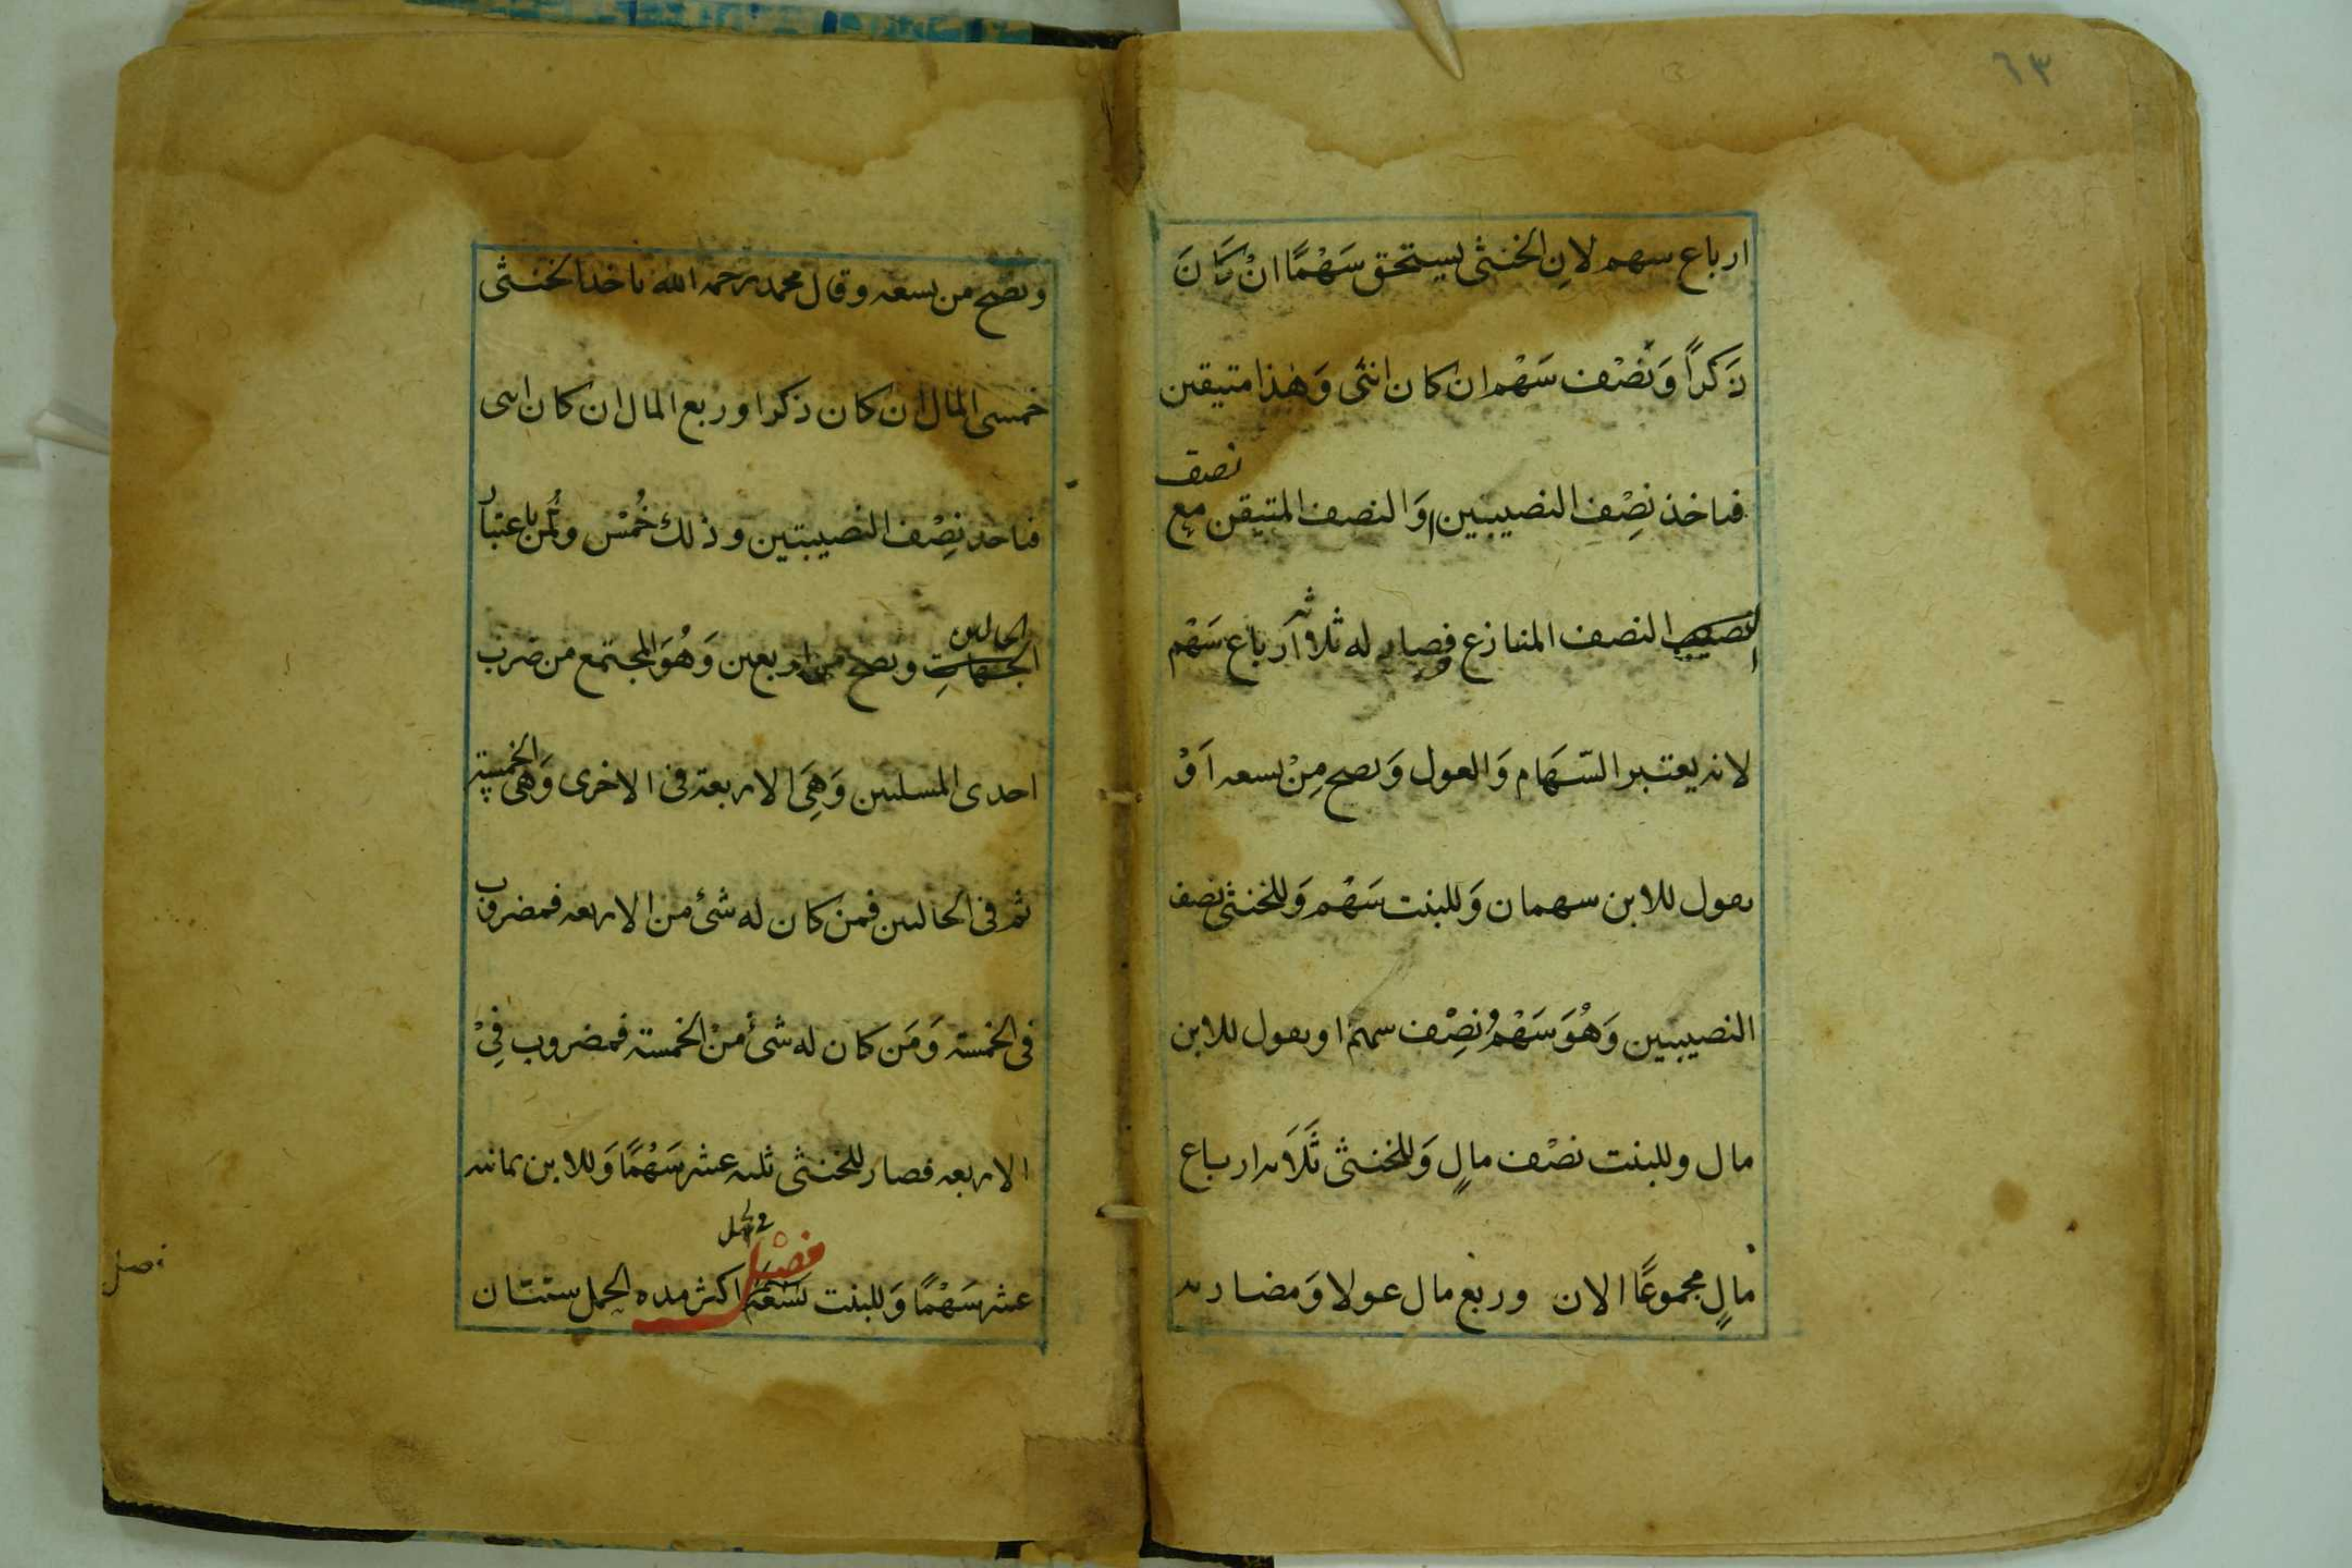 ٦٣
ارباع سهم لانِ الخنثى يستحق سَهْمًا انْ كَانَ
ذَكَراً وَنصْف سَهْم ان كان انثى وَهٰذا متيقين
نصف
فياخذ نِصْف النصيبين اوَالنصف المتيقن مع
النصف المنازع فصار له ثلاثة اَرباع سَهْم
لانه يعتبر السّهَام وَالعول وَيصح مِنْ تسعه اَوْ
يقول للابن سهمان وَللبنت سَهْم وَللخنثى نصف
النصيبين وَهُوَ سَهْمٌ وَنصِْف سهم او يقول للابن
مال وللبنت نصْف مالٍ وَللخنثى ثَلَاثه ارباع
مالٍ مجموعًا الان وربع مال عولا وَمضاربه
ويصح من تسعه وقال محمد رحمه الله ياخذ الخنثى
خمسى المال ان كان ذكرا وربع المال ان كان انثى
فياخذ نِصْف النصيبتين وذلك خُمْس وثُمن باعتبار
الحالين
ويصح من اربعين وَهُوَ المجتمع من ضرب
احدى المسلتين وَهِىَ الاربعة فى الاخرى وَهِىَ الخمسة
ثم فى الحالتين فمن كان له شئ من الاربعه فمضروب
فى الخمسة وَمَن كان له شئ مِنْ الخمسة فمضروب فِىْ
الاربعه فصار للخنثى ثلثه عشر سَهْمًا وَللابن ثمانيه
عشر سَهْمًا وَللبنت تسْعَة فصْل اكثر مده الحمل سنتان
فصل